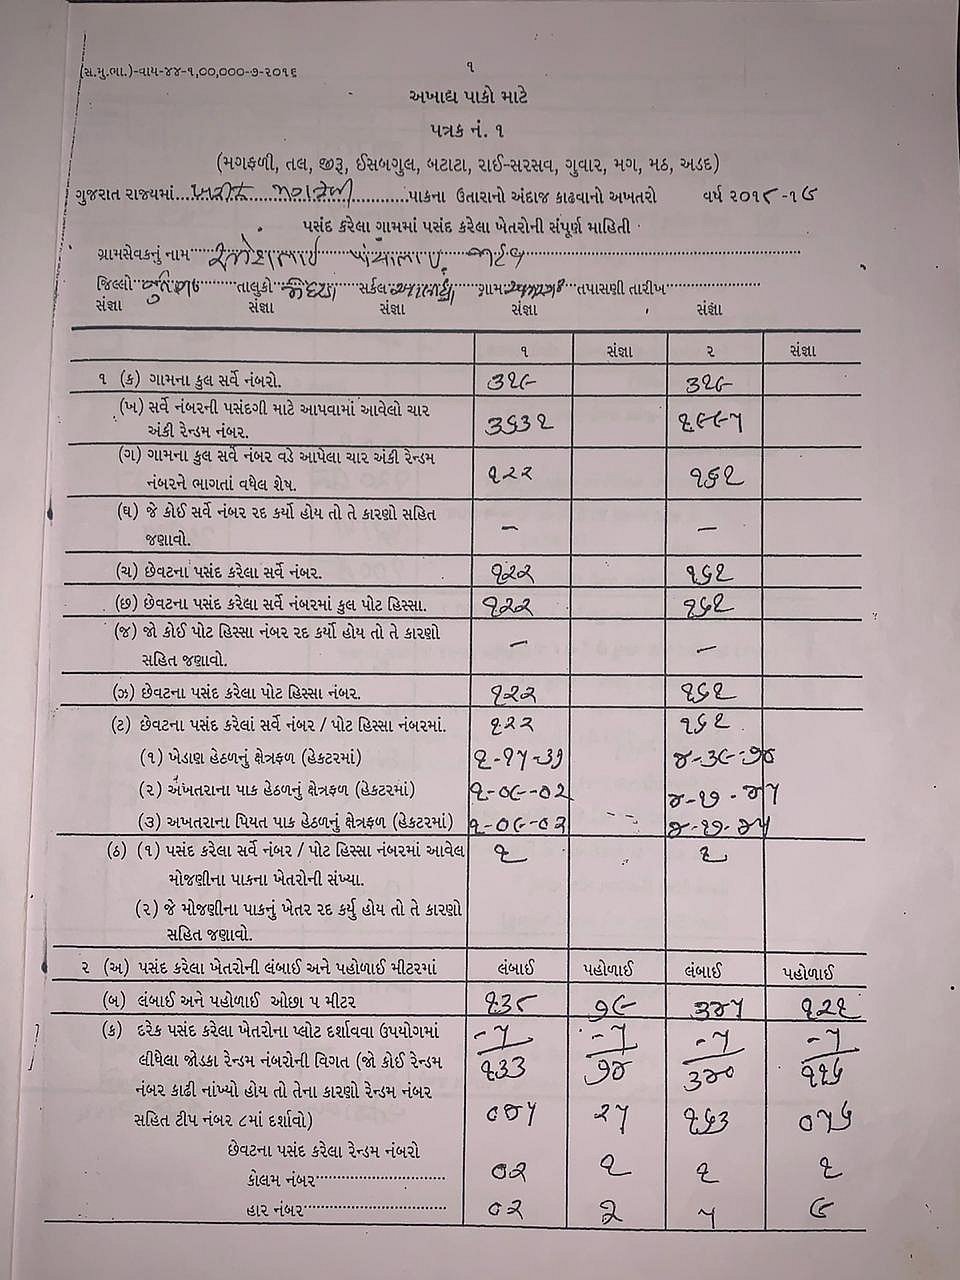 (સ.મુ.ભા.)-વાય-૪૪-૧,૦૦,૦૦૦-૭-૨૦૧૬
૧
અખાદ્ય પાકો માટે
પત્રક નં. ૧
(મગફળી, તલ, જીરૂ, ઈસબગુલ, બટાટા, રાઈ-સરસવ, ગુવાર, મગ, મઠ, અડદ)
ગુજરાત રાજ્યમાં ખરીફ મગફળી પાકના ઉતારાનો અંદાજ કાઢવાનો અખતરો વર્ષ ૨૦૧૮-૧૯
પસંદ કરેલા ગામમાં પસંદ કરેલા ખેતરોની સંપૂર્ણ માહિતી
ગ્રામસેવકનું નામ રમેશભાઈ
જિલ્લો તાલુકો સર્કલ ગ્રામ તપાસણી તારીખ
સંજ્ઞા સંજ્ઞા સંજ્ઞા સંજ્ઞા સંજ્ઞા
૧ સંજ્ઞા ૨ સંજ્ઞા
૧ (ક) ગામના કુલ સર્વે નંબરો. ૩૨૯ ૩૨૯
(ખ) સર્વે નંબરની પસંદગી માટે આપવામાં આવેલો ચાર
અંકી રેન્ડમ નંબર. ૩૬૩૨ ૧૯૯૫
(ગ) ગામના કુલ સર્વે નંબર વડે આપેલા ચાર અંકી રેન્ડમ
નંબરને ભાગતાં વધેલ શેષ. ૧૨૨ ૧૬૧
(ઘ) જે કોઈ સર્વે નંબર રદ કર્યો હોય તો તે કારણો સહિત – –
જણાવો.
(ચ) છેવટના પસંદ કરેલા સર્વે નંબર. ૧૨૨ ૧૬૧
(છ) છેવટના પસંદ કરેલા સર્વે નંબરમાં કુલ પોટ હિસ્સા. ૧૨૨ ૧૬૧
(જ) જો કોઈ પોટ હિસ્સા નંબર રદ કર્યો હોય તો તે કારણો – –
સહિત જણાવો.
(ઝ) છેવટના પસંદ કરેલા પોટ હિસ્સા નંબર. ૧૨૨ ૧૬૧
(ટ) છેવટના પસંદ કરેલાં સર્વે નંબર / પોટ હિસ્સા નંબરમાં. ૧૨૨ ૧૬૧
(૧) ખેડાણ હેઠળનું ક્ષેત્રફળ (હેક્ટરમાં) ૧-૧૫-૩૭ ૪-૩૯-૭૪
(૨) અખતરાના પાક હેઠળનું ક્ષેત્રફળ (હેક્ટરમાં) ૧-૦૯-૦૨ ૪-૧૭-૪૫
(૩) અખતરાના પિયત પાક હેઠળનું ક્ષેત્રફળ (હેક્ટરમાં) ૧-૦૯-૦૨ -- ૪-૧૭-૪૫
(ઠ) (૧) પસંદ કરેલા સર્વે નંબર / પોટ હિસ્સા નંબરમાં આવેલ ૧ ૧
મોજણીના પાકના ખેતરોની સંખ્યા.
(૨) જે મોજણીના પાકનું ખેતર રદ કર્યુ હોય તો તે કારણો
સહિત જણાવો.
૨ (અ) પસંદ કરેલા ખેતરોની લંબાઈ અને પહોળાઈ મીટરમાં લંબાઈ પહોળાઈ લંબાઈ પહોળાઈ
(બ) લંબાઈ અને પહોળાઈ ઓછા ૫ મીટર ૧૩૮ ૭૯ ૩૪૫ ૧૨૧
(ક) દરેક પસંદ કરેલા ખેતરોના પ્લોટ દર્શાવવા ઉપયોગમાં -૫ -૫ -૫ -૫
લીધેલા જોડકા રેન્ડમ નંબરોની વિગત (જો કોઈ રેન્ડમ ૧૩૩ ૭૪ ૩૪૦ ૧૧૬
નંબર કાઢી નાંખ્યો હોય તો તેના કારણો રેન્ડમ નંબર
સહિત ટીપ નંબર ૮માં દર્શાવો) ૦૪૫ ૨૫ ૧૬૩ ૦૫૬
છેવટના પસંદ કરેલા રેન્ડમ નંબરો
કોલમ નંબર ૦૨ ૧ ૧ ૧
હાર નંબર ૦૨ ૨ ૫ ૯